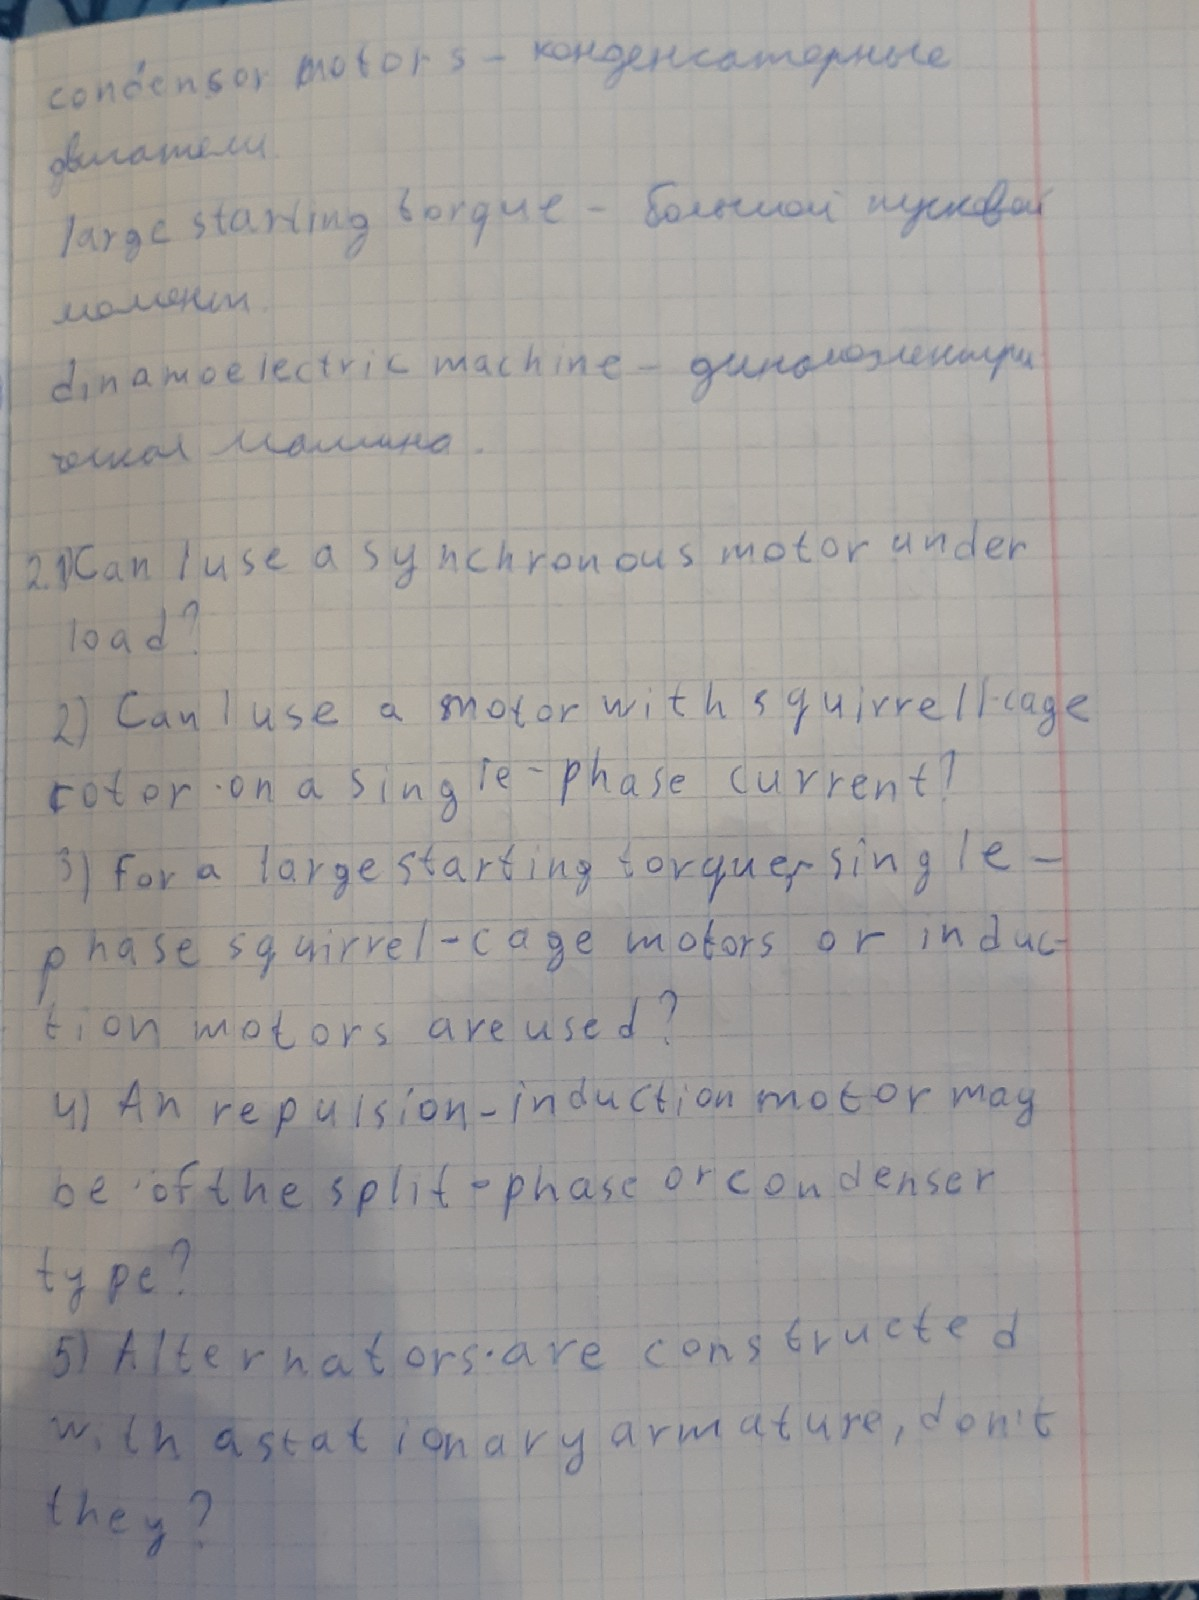 condensor motors – конденсаторные
двигатели
large starting torque – большой пусковой
момент.
dinamoelectric machine – динамоэлектри
ческая машина.
2.1) Can I use a synchronous motor under
load?
2) Can I use a motor with squirrell-cage
rotor on a single-phase current?
3) For a large starting torque, single-
phase squirrel-cage motors or induc-
tion motors are used?
4) An repulsion-induction motor may
be of the split-phase or condenser
type?
5) Alternators are constructed
with a stationary armature, don't
they?